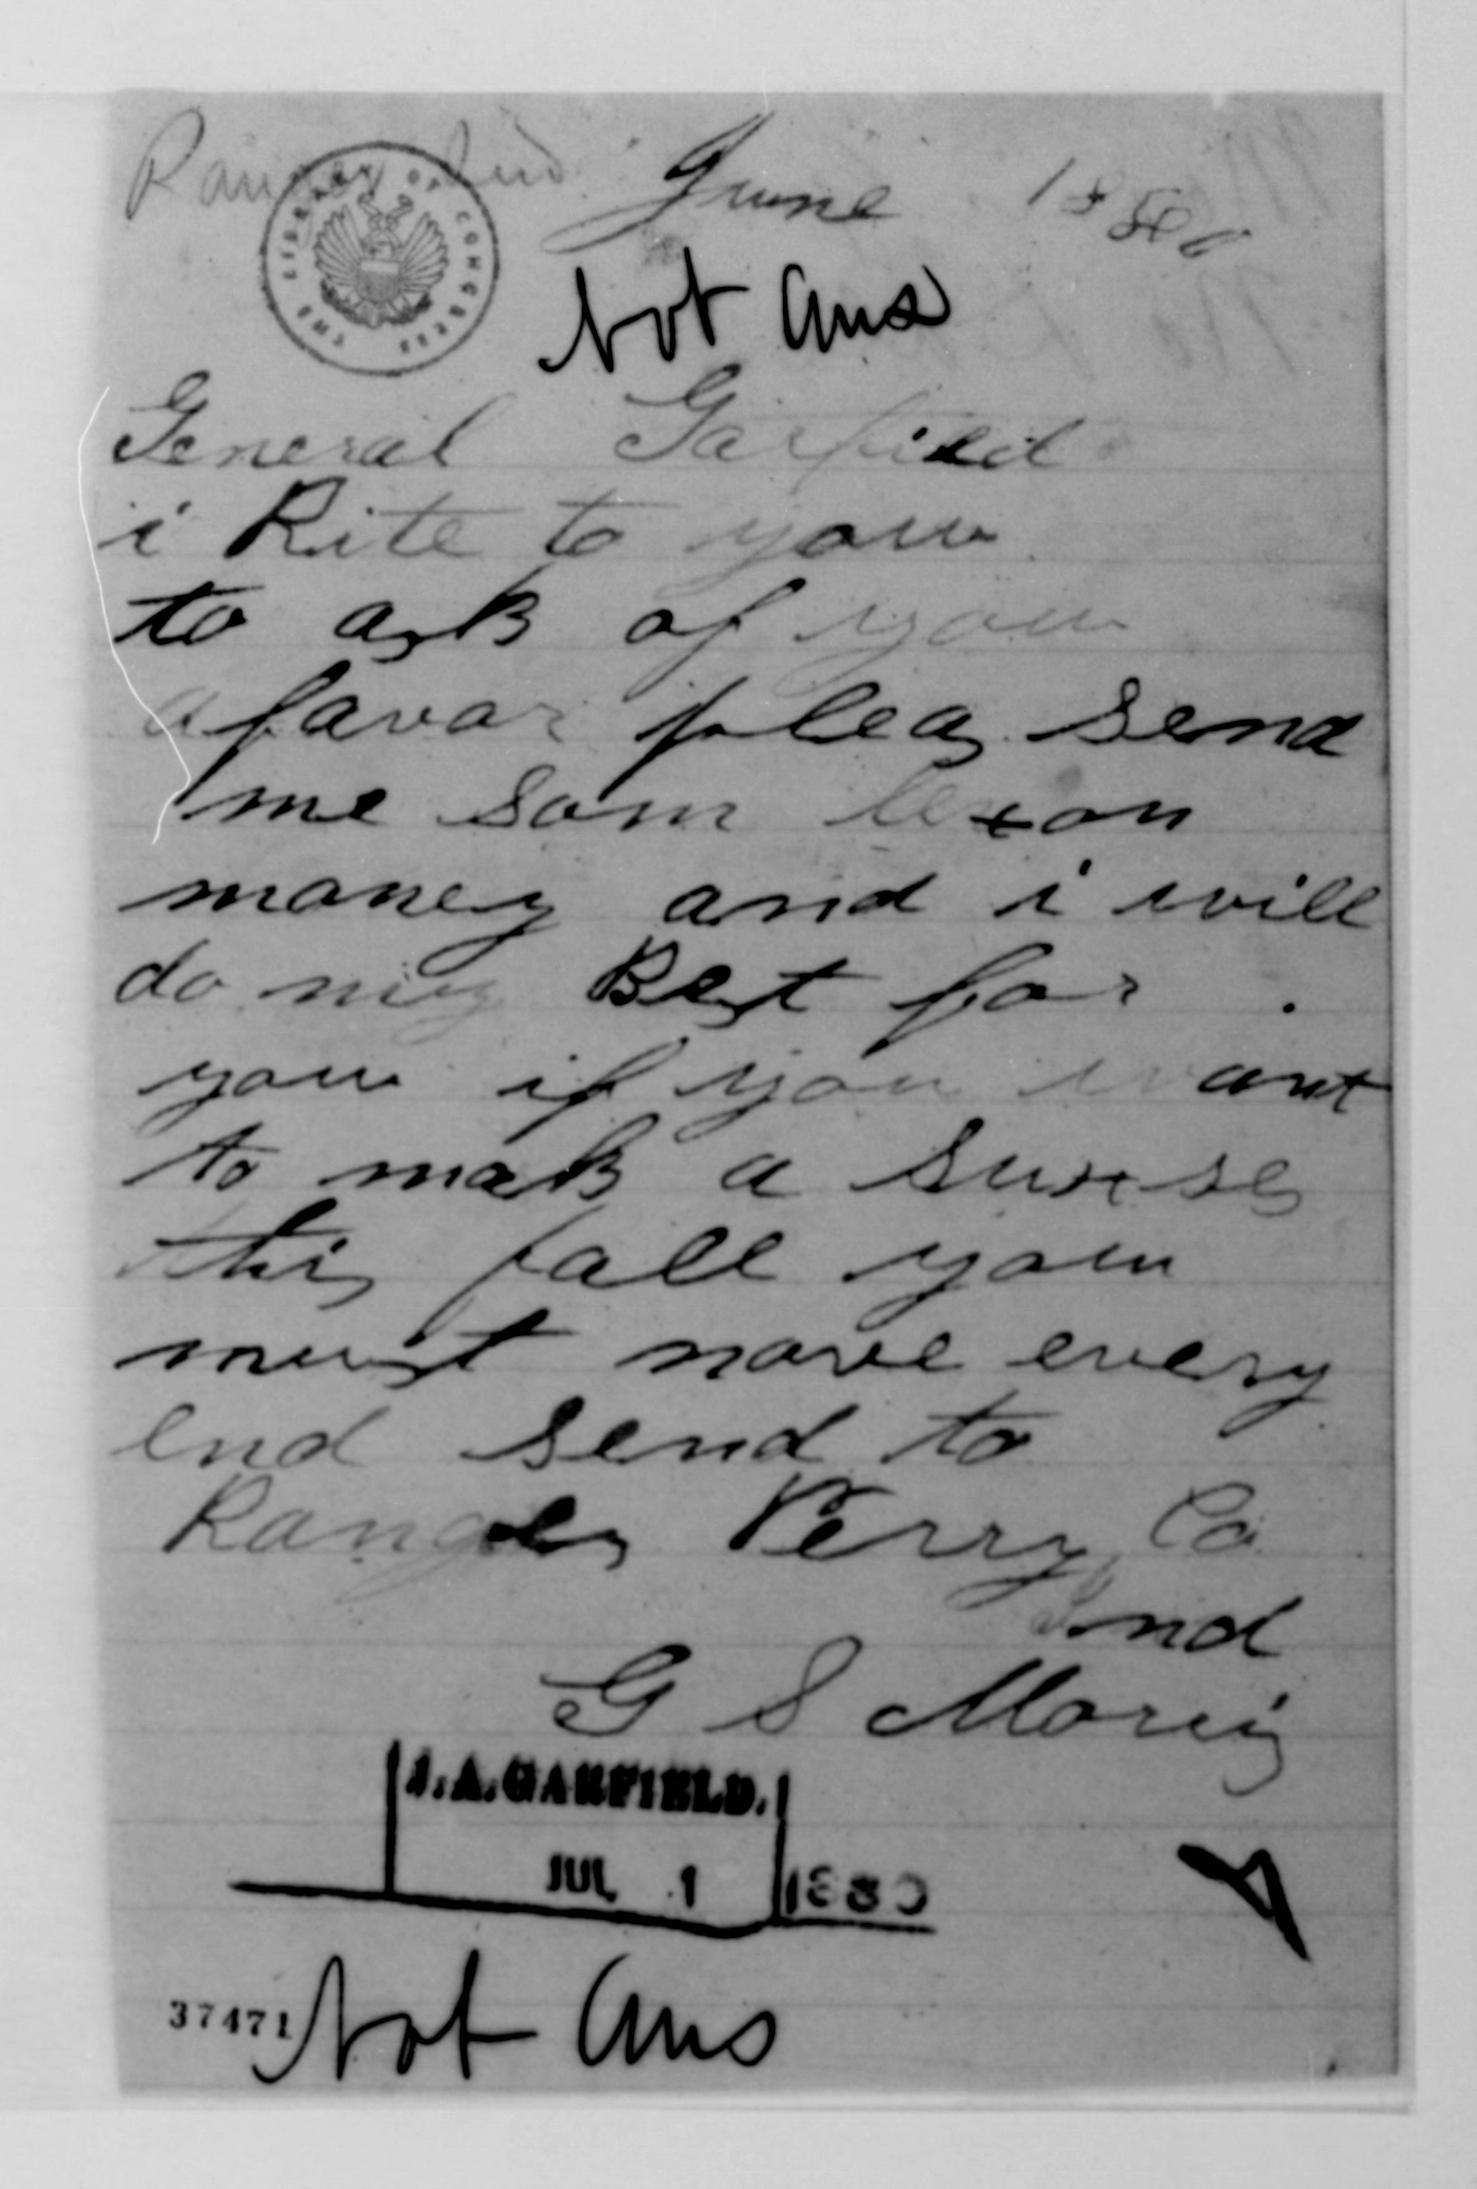 Ind. June 1880
THE LIBRARY OF CONGRESS
Not Ans
General Garfield
i Rite to you
to ask of you
a favor pleas send
me som lexon
money and i will
do my Best for
you if you want
to mak a suxses
this fall you
must move every
end send to
Ranger Perry Co
Ind
G S Moris
J.A.GARFIELD.
JUL 1 1880
37471 Not Ans